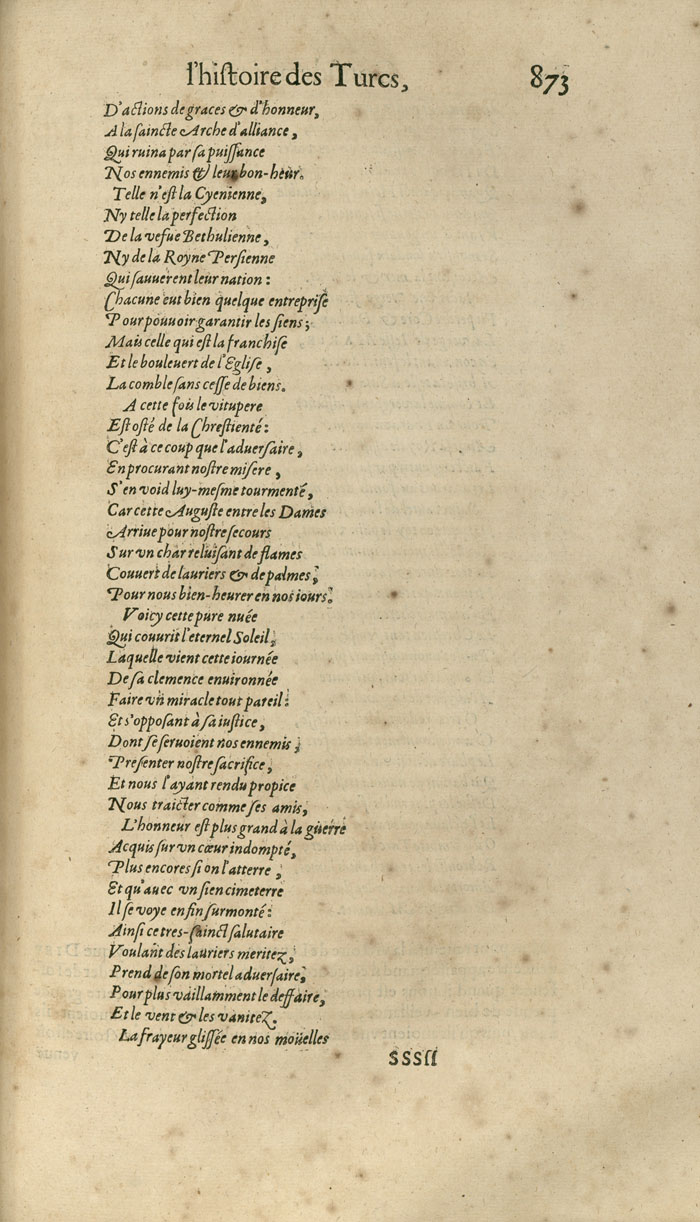 l'histoire des Turcs, 873
D'actions de graces & d'honneur,
A la saincte Arche d'alliance,
Qui ruina par sa puissance
Nos ennemis & leur bon-heur.
Telle n'est la Cyenienne,
Ny telle la perfection
De la vefue Bethulienne,
Ny de la Royne Persienne
Qui sauuerent leur nation:
Chacune eut bien quelque entreprise
Pour pouuoir garantir les siens;
Mais celle qui est la franchise
Et le bouleuert de l'Eglise,
La comble sans cesse de biens.
A cette fois le vitupere
Est osté de la Chrestienté:
C'est à ce coup que l'aduersaire,
En procurant nostre misere,
S'en void luy-mesme tourmenté,
Car cette Auguste entre les Dames
Arriue pour nostre secours
Sur vn char reluisant de flames
Couuert de lauriers & de palmes,
Pour nous bien-heurer en nos iours.
Voicy cette pure nuée
Qui couurit l'eternel Soleil,
Laquelle vient cette iournée
De sa clemence enuironnée
Faire vn miracle tout pareil:
Et s'opposant à sa iustice,
Dont se seruoient nos ennemis,
Presenter nostre sacrifice,
Et nous l'ayant rendu propice
Nous traicter comme ses amis,
L'honneur est plus grand à la guerre
Acquis sur vn cœur indompté,
Plus encores si on l'atterre,
Et qu'auec vn sien cimeterre
Il se voye enfin surmonté:
Ainsi ce tres-sainct salutaire
Voulant des lauriers meritez,
Prend de son mortel aduersaire,
Pour plus vaillamment le deffaire,
Et le vent & les vanitez.
La frayeur glissée en nos moüelles
SSSſſ